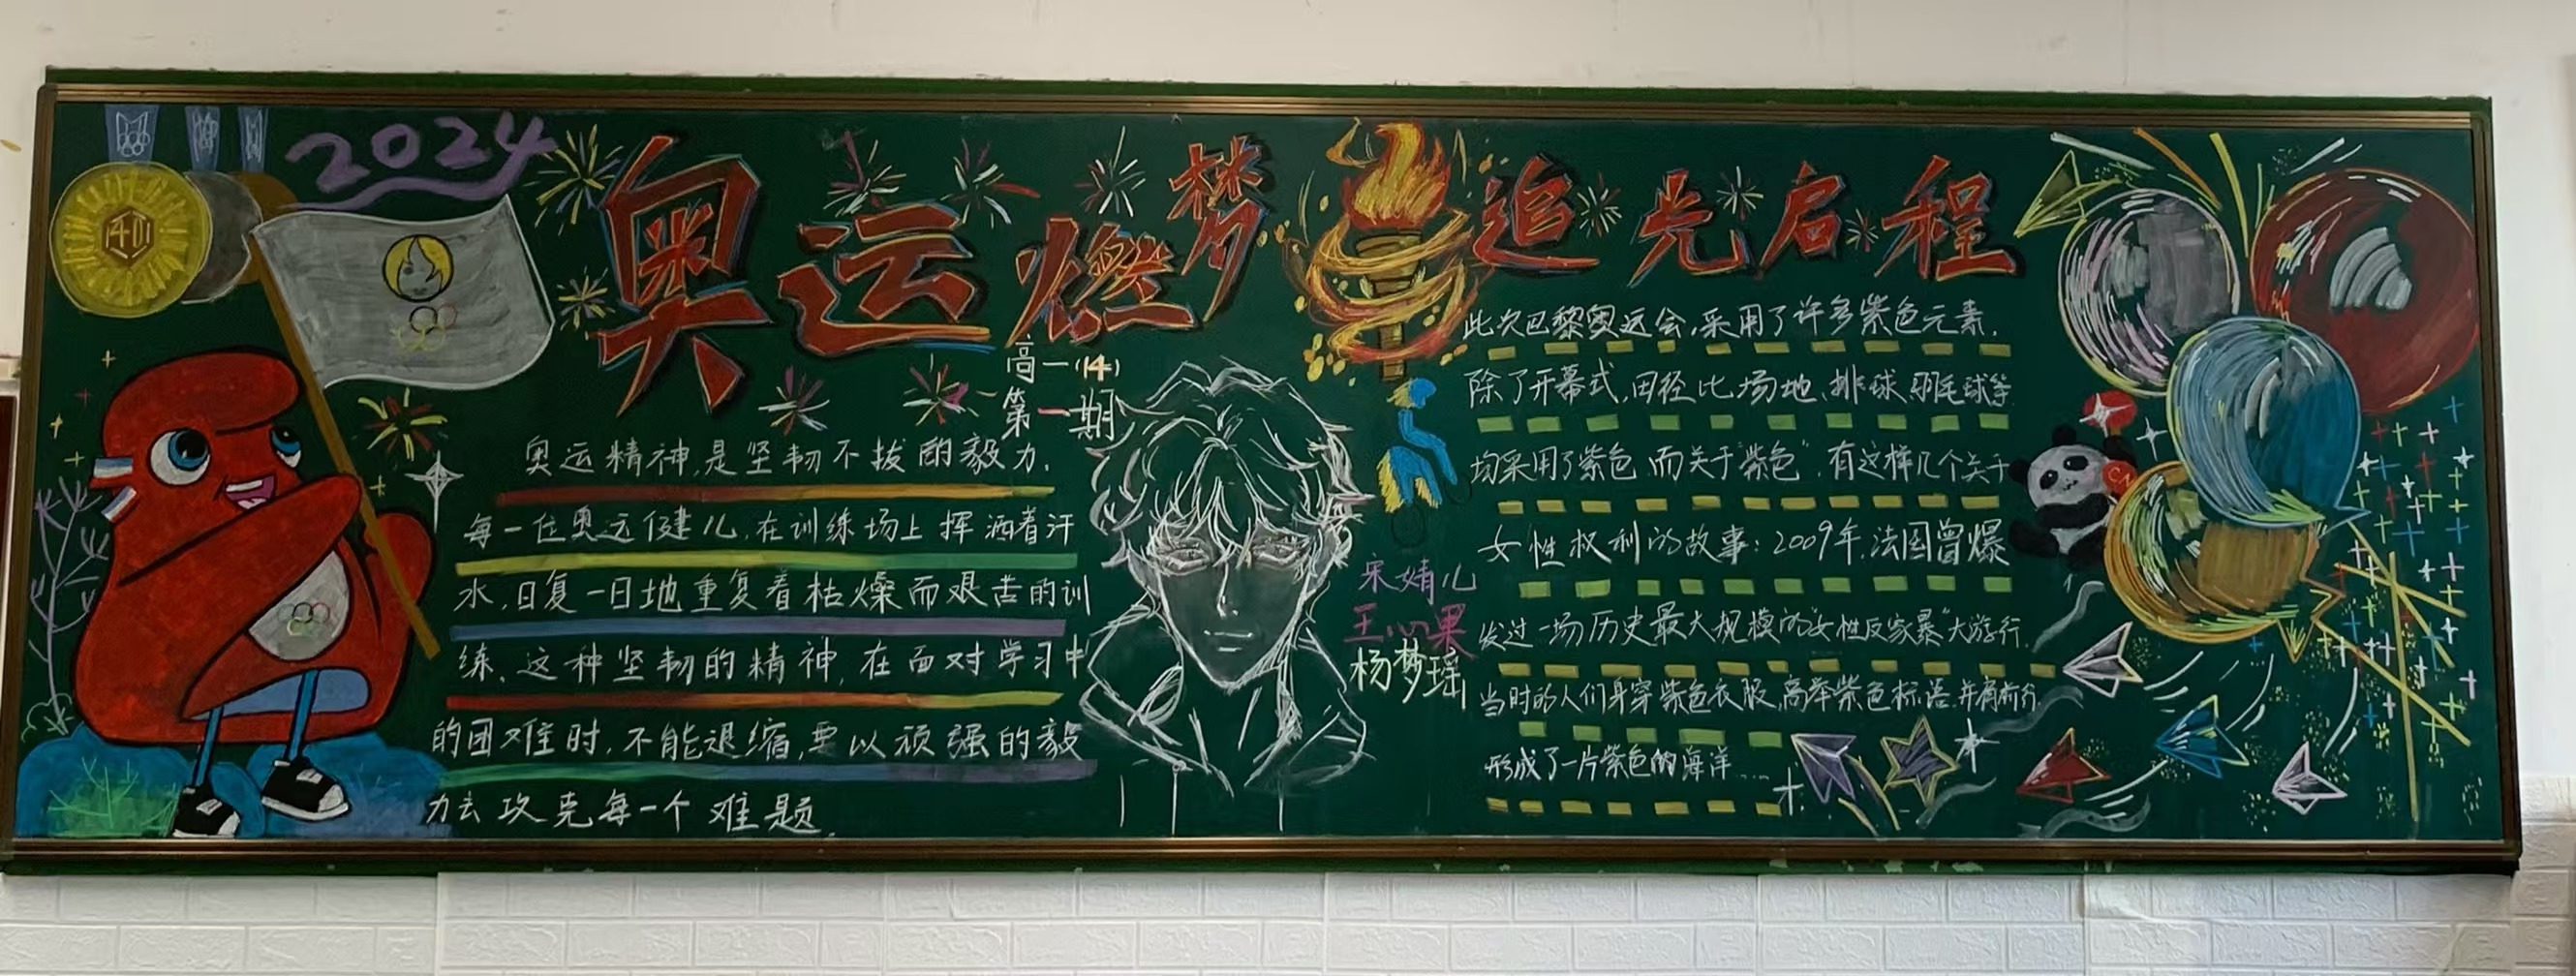 2024
奥运燃梦
追光启程
高一(14)
第一期
奥运精神,是坚韧不拔的毅力.
每一位奥运健儿,在训练场上挥洒着汗
水,日复一日地重复着枯燥而艰苦的训
练.这种坚韧的精神,在面对学习中
的困难时,不能退缩,要以顽强的毅
力去攻克每一个难题.
宋婧儿
王心果
杨梦瑶
此次巴黎奥运会,采用了许多紫色元素.
除了开幕式,田径比场地、排球、羽毛球等
均采用了紫色.而关于"紫色",有这样几个关于
女性权利的故事:2009年,法国曾爆
发过一场历史最大规模的"女性反家暴"大游行.
当时的人们身穿紫色衣服,高举紫色标语,并肩前行.
形成了一片紫色的海洋...